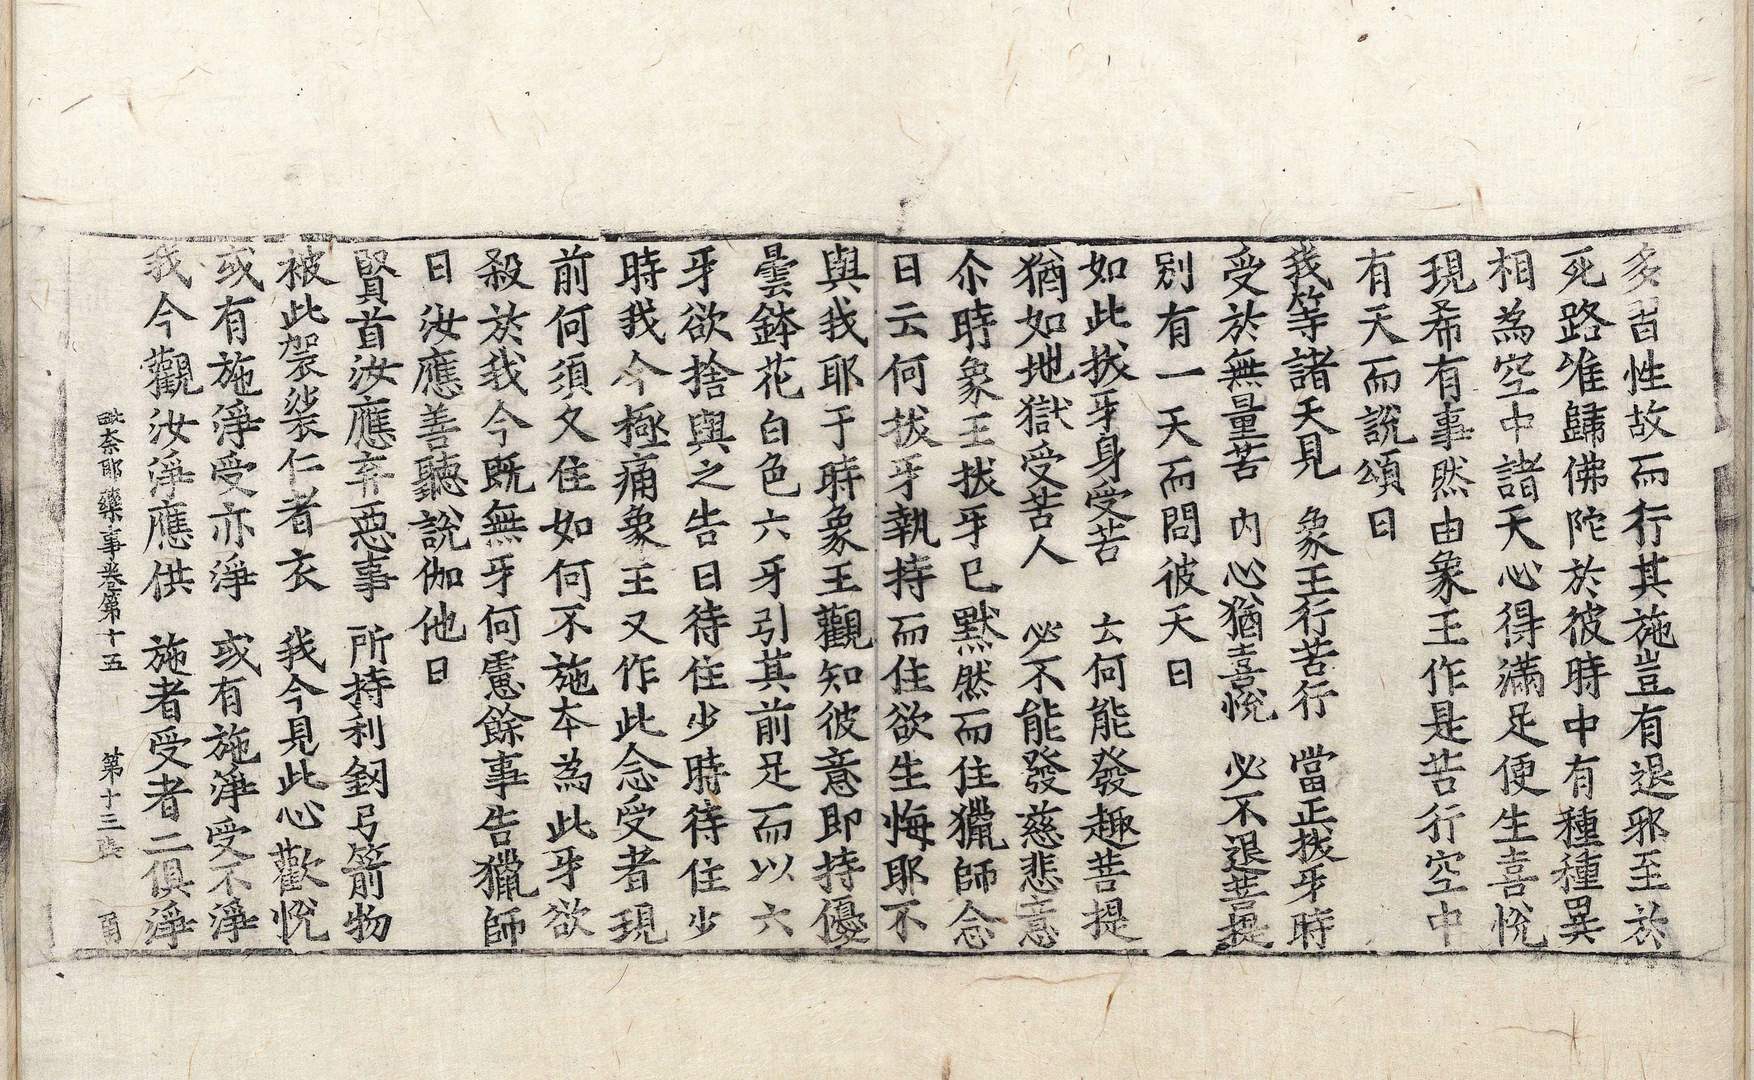 多習性故而行其施豈有退邪至於
死路唯歸佛陀於彼時中有種種異
相為空中諸天心得滿足便生喜悅
現希有事然由象王作是苦行空中
有天而說頌曰
我等諸天見　象王行苦行　當正拔牙時
受於無量苦　内心猶喜悅　必不退菩提
別有一天而問彼天曰
如此拔牙身受苦　云何能發趣菩提
猶如地獄受苦人　必不能發慈悲意
尒時象王拔牙已默然而住獵師念
曰云何拔牙執持而住欲生悔耶不
與我耶于時象王觀知彼意即持優
曇鉢花白色六牙引其前足而以六
牙欲捨與之告曰待住少時待住少
時我今極痛象王又作此念受者現
前何須久住如何不施本為此牙欲
殺於我今既無牙何慮餘事告獵師
曰汝應善聽說伽他曰
賢首汝應弃惡事　所持利釼弓箭物
被此袈裟仁者衣　我今見此心歡悅
或有施淨受亦淨　或有施淨受不淨
我今觀汝淨應供　施者受者二俱淨
毗奈耶藥事卷第十五　第十三張　酉